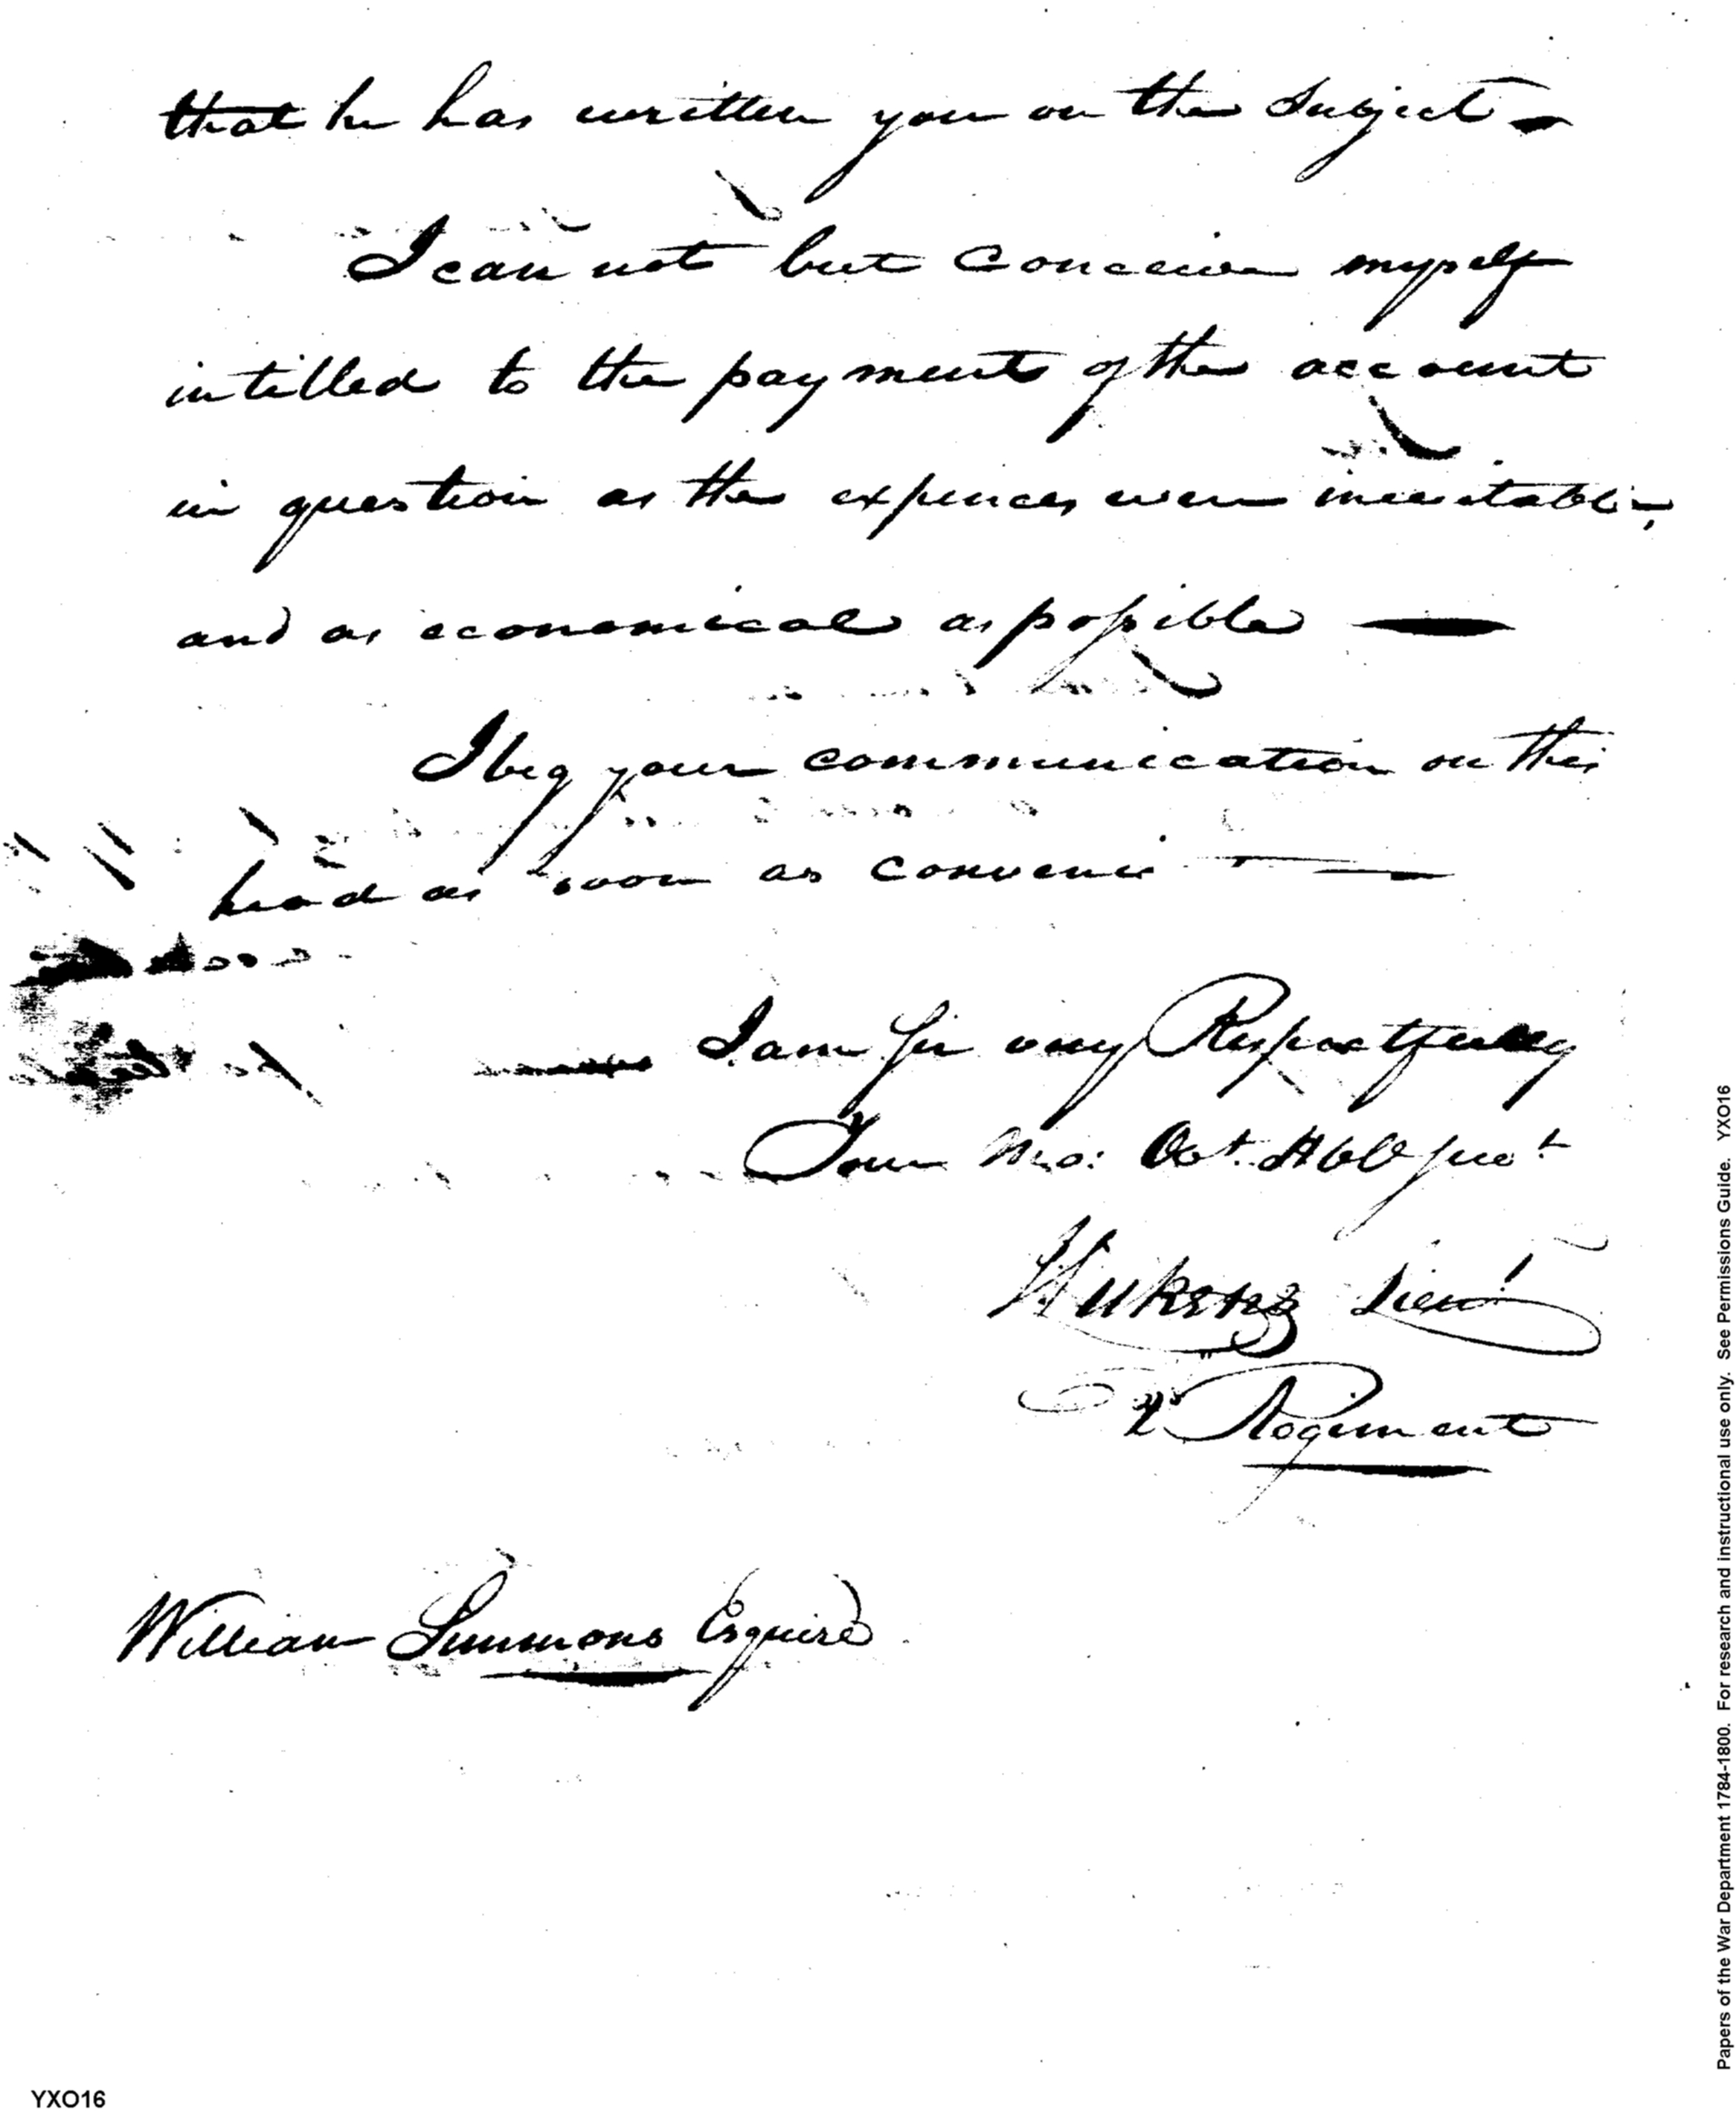 that he has written you on the Subject –
I can not but Conceive myself
intitled to the payment of the account
in question as the expences were inevitable,
and as economical as possible —
I beg your communication on this
head as soon as convenient —
I am Sir very Respectfully
Your Mo: Obt. Hble Servt
Lieut
2d Regiment
William Simmons Esquire
Papers of the War Department 1784-1800. For research and instructional use only. See Permissions Guide. YXO16
YXO16